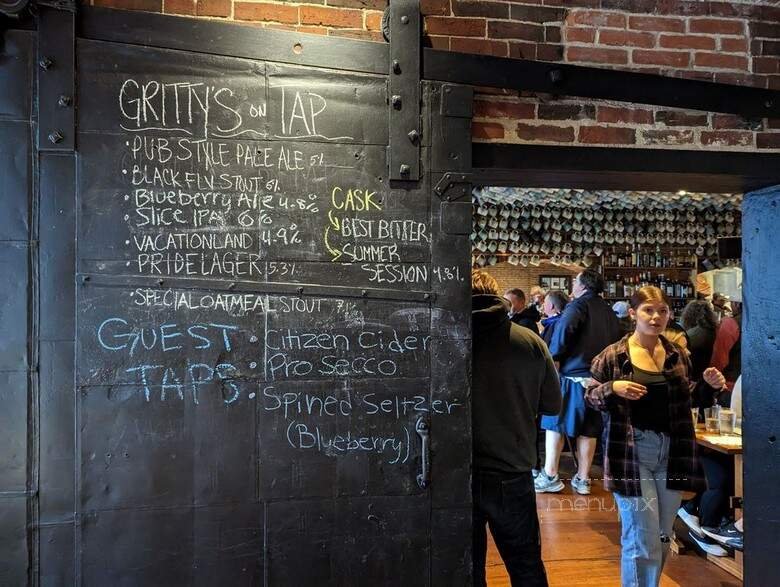 GRITTY'S ON TAP
• PUB STYLE PALE ALE 5%
• BLACK FLY STOUT 6%
• Blueberry Ale 4.8%
• SLICE IPA 6%
• VACATIONLAND 4.9%
• PRIDE LAGER 5.3%
• SPECIAL OATMEAL STOUT
CASK
BEST BITTER
SUMMER
SESSION 4.8%
GUEST
TAPS
• Citizen Cider
• Prosecco
• Spined Seltzer
(Blueberry)
menupix